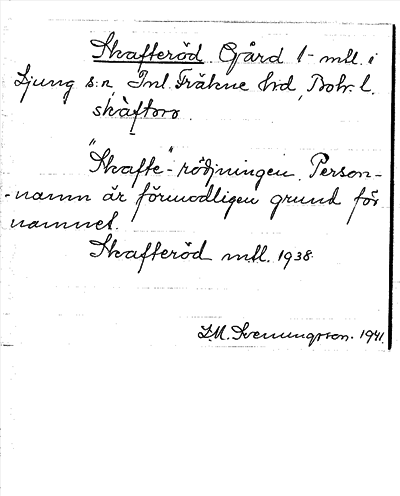 Skafteröd. Gård 1 mtl. i
Ljung s:n, Inl. Fräkne hd, Boh. l.
skàftrro.
"Skafte"-rödjningen. Person-
-namn är förmodligen grund för
namnet.
Skafteröd mtl. 1938.
J.M. Svenungsson. 1941.